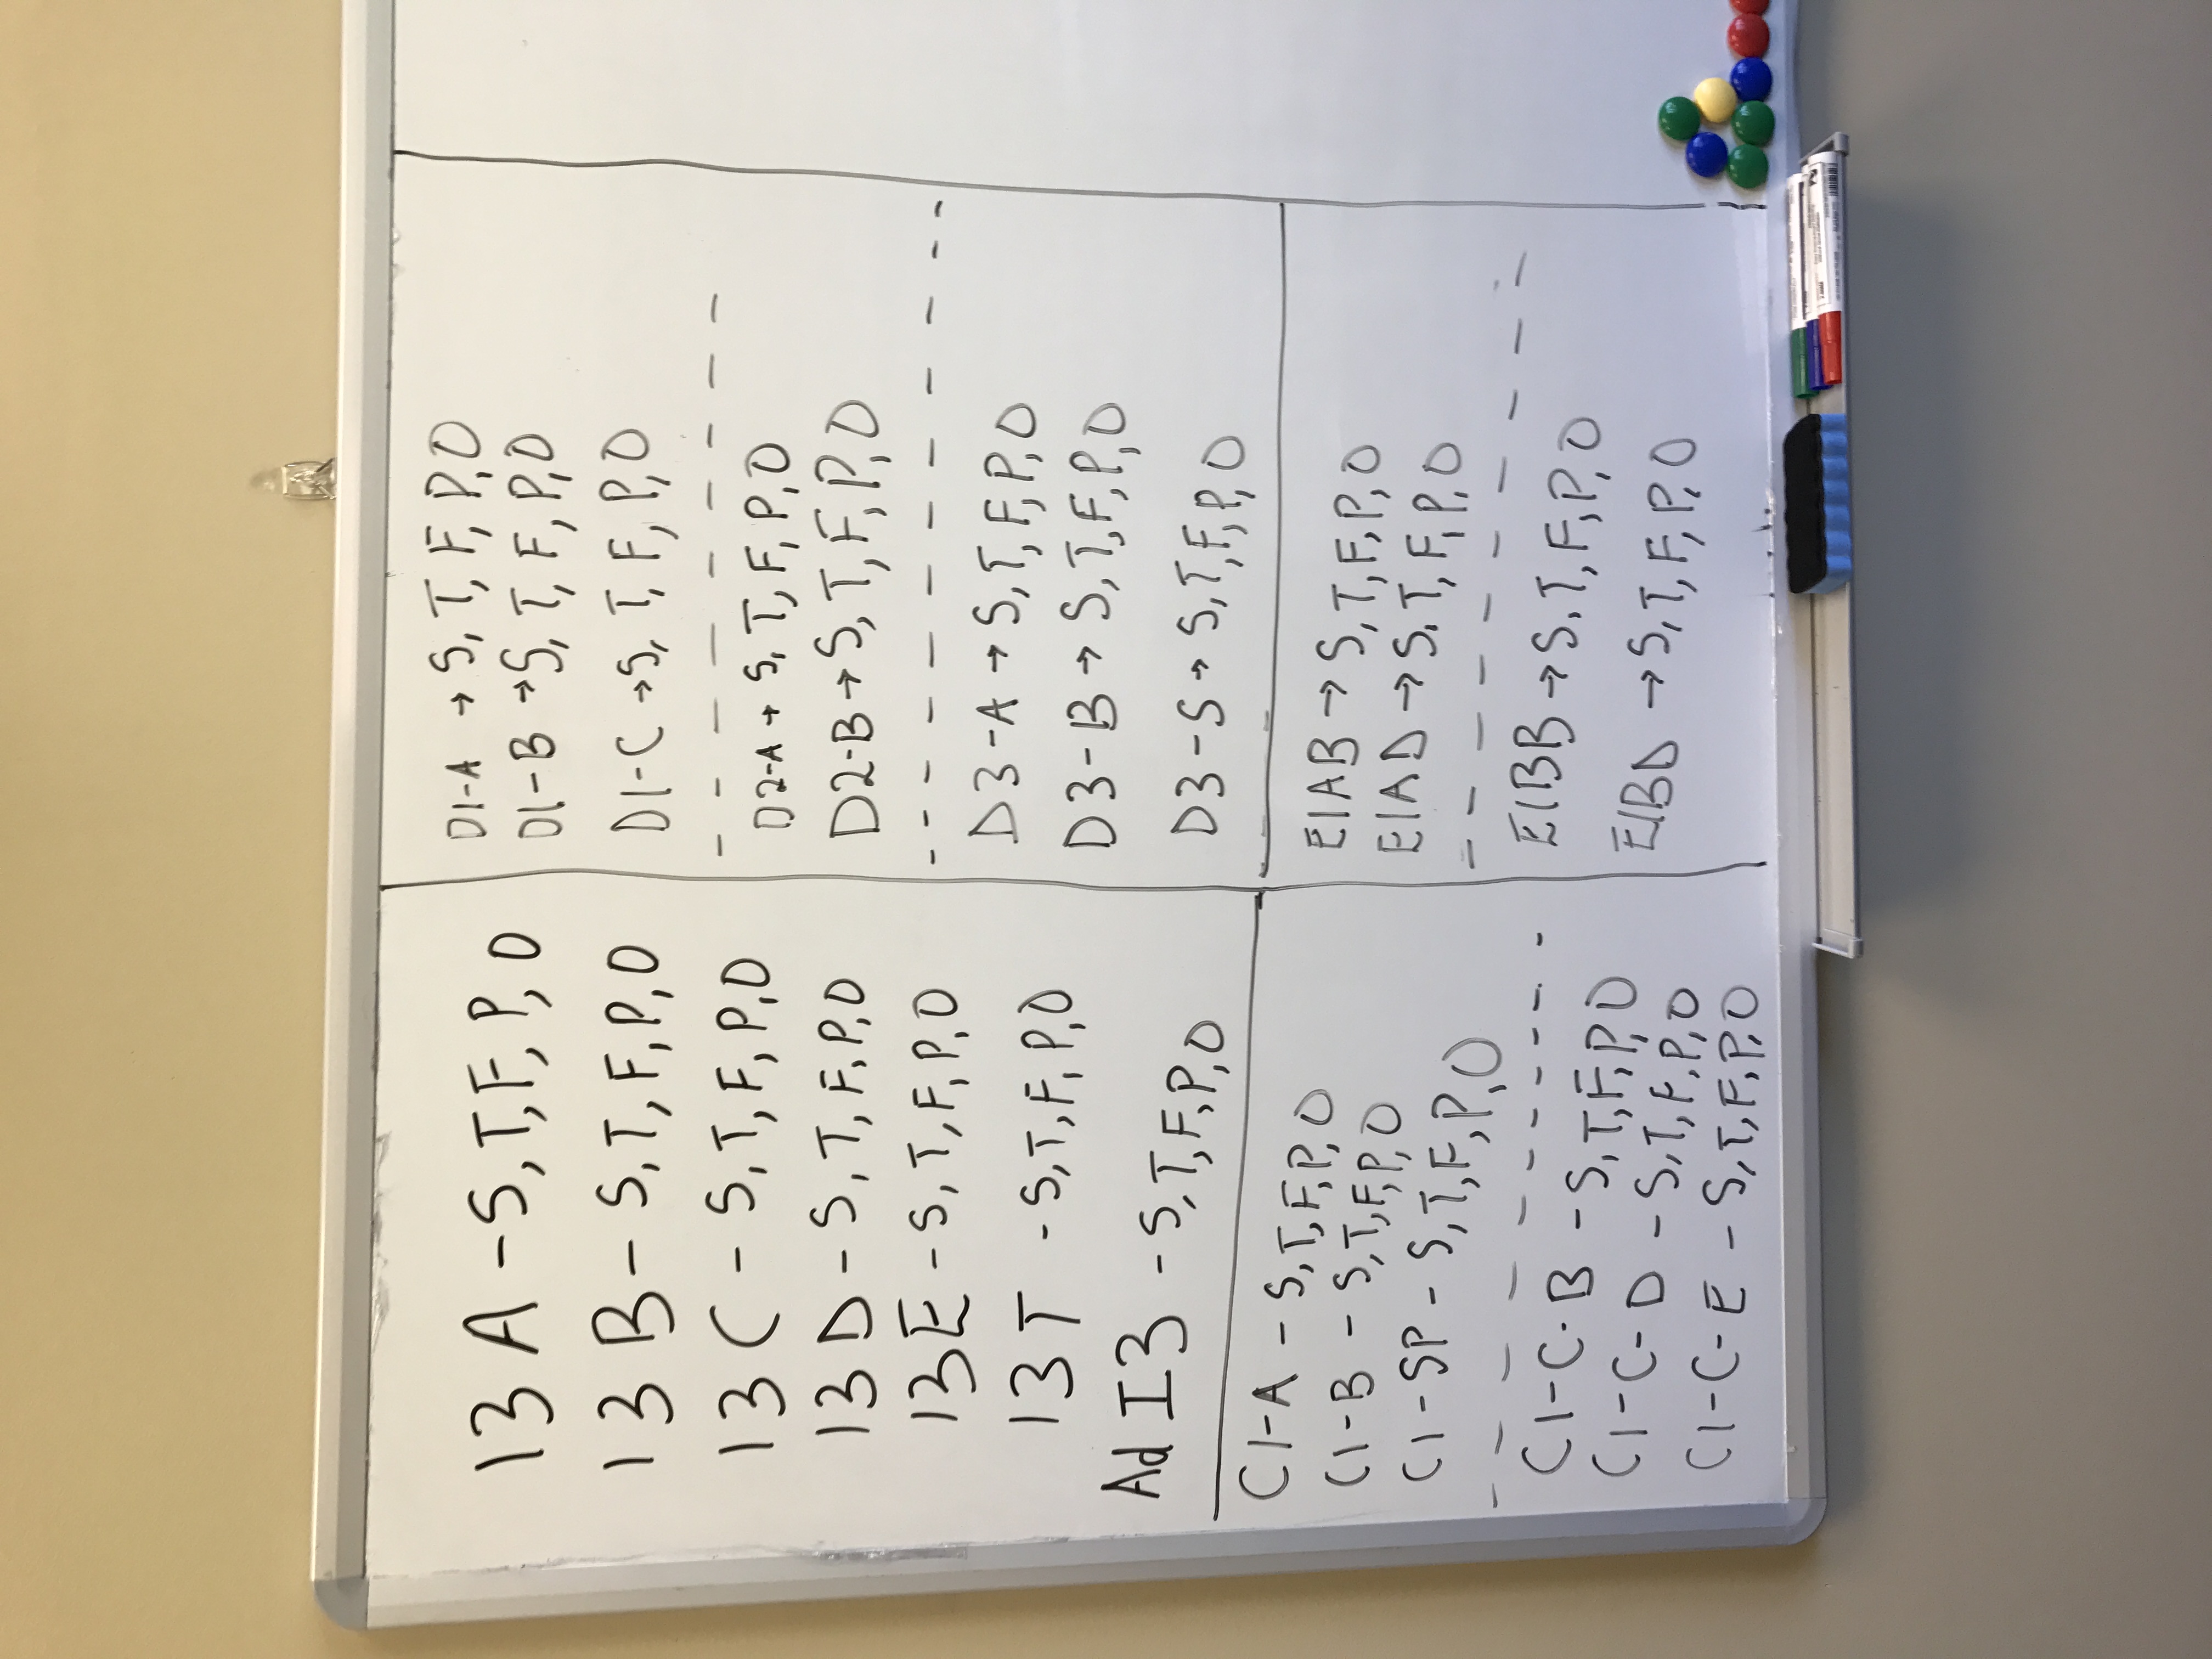 13 A - S, T, F, P, O
13 B - S, T, F, P, O
13 C - S, T, F, P, O
13 D - S, T, F, P, O
13 E - S, T, F, P, O
13 T - S, T, F, P, O
Ad I3 - S, T, F, P, O
C1-A - S, T, F, P, O
C1-B - S, T, F, P, O
C1-SP - S, T, F, P, O
C1-C-B - S, T, F, P, O
C1-C-D - S, T, F, P, O
C1-C-E - S, T, F, P, O
D1-A → S, T, F, P, O
D1-B → S, T, F, P, O
D1-C → S, T, F, P, O
D2-A → S, T, F, P, O
D2-B → S, T, F, P, O
D3-A → S, T, F, P, O
D3-B → S, T, F, P, O
D3-S → S, T, F, P, O
E1AB → S, T, F, P, O
E1AD → S, T, F, P, O
E1BB → S, T, F, P, O
E1BD → S, T, F, P, O